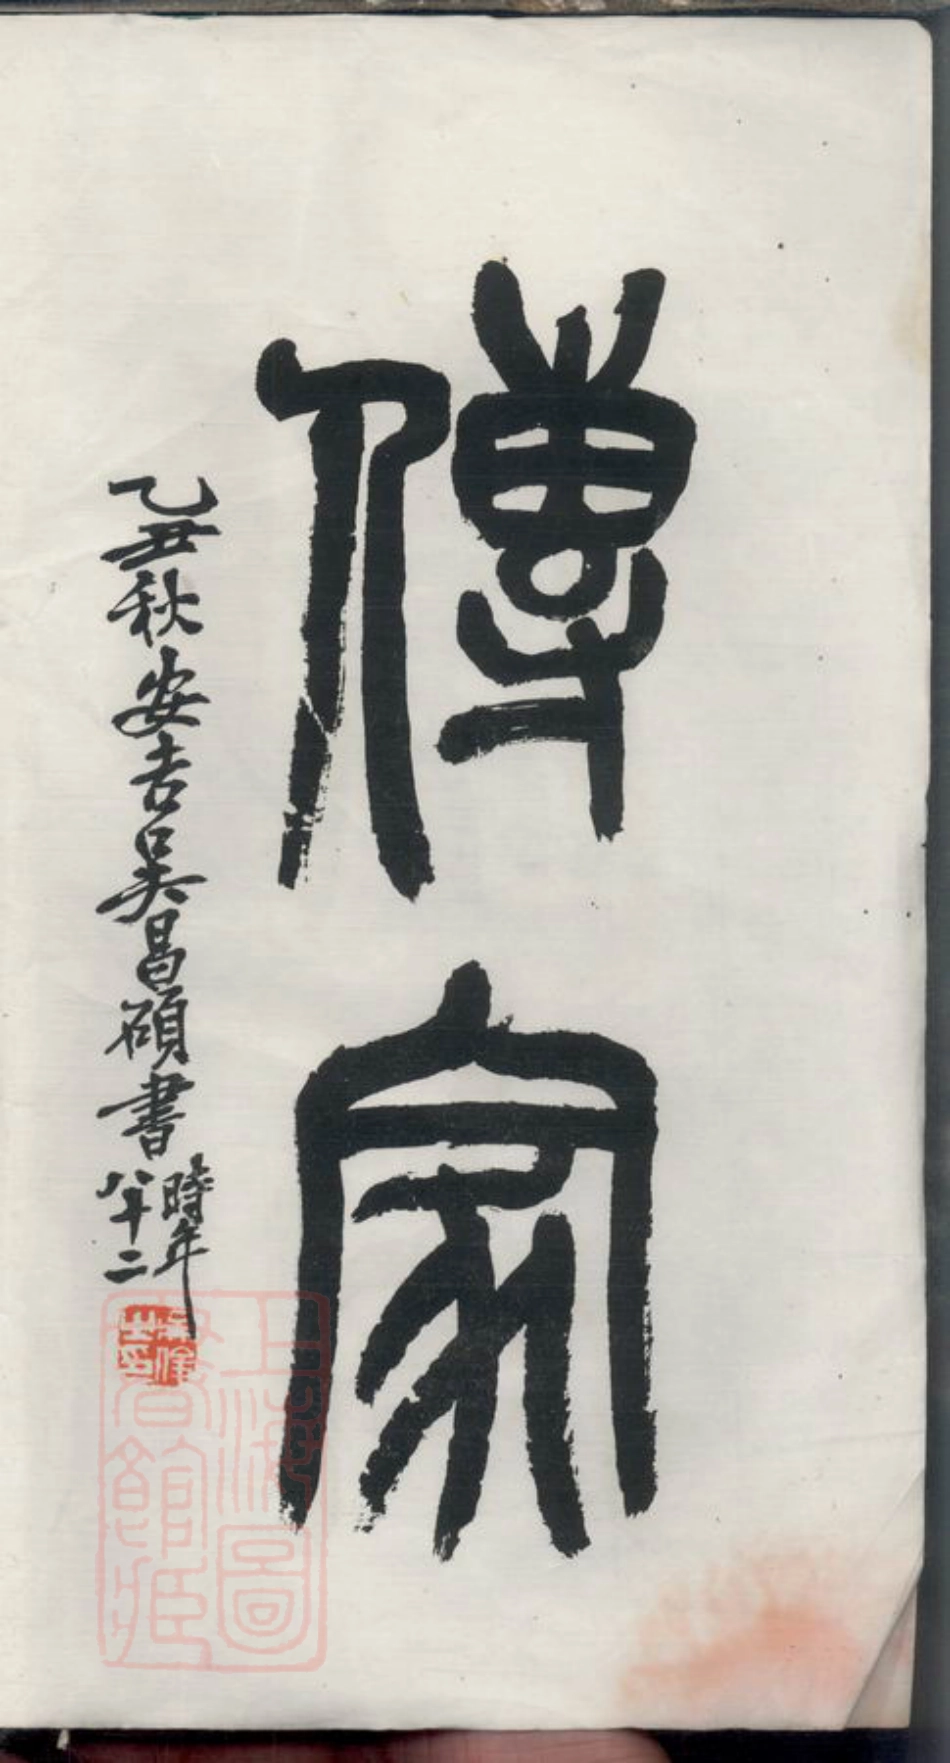 傳家
乙丑秋安吉吳昌碩書
時年
八十二
吳俊之印
上海圖書館藏